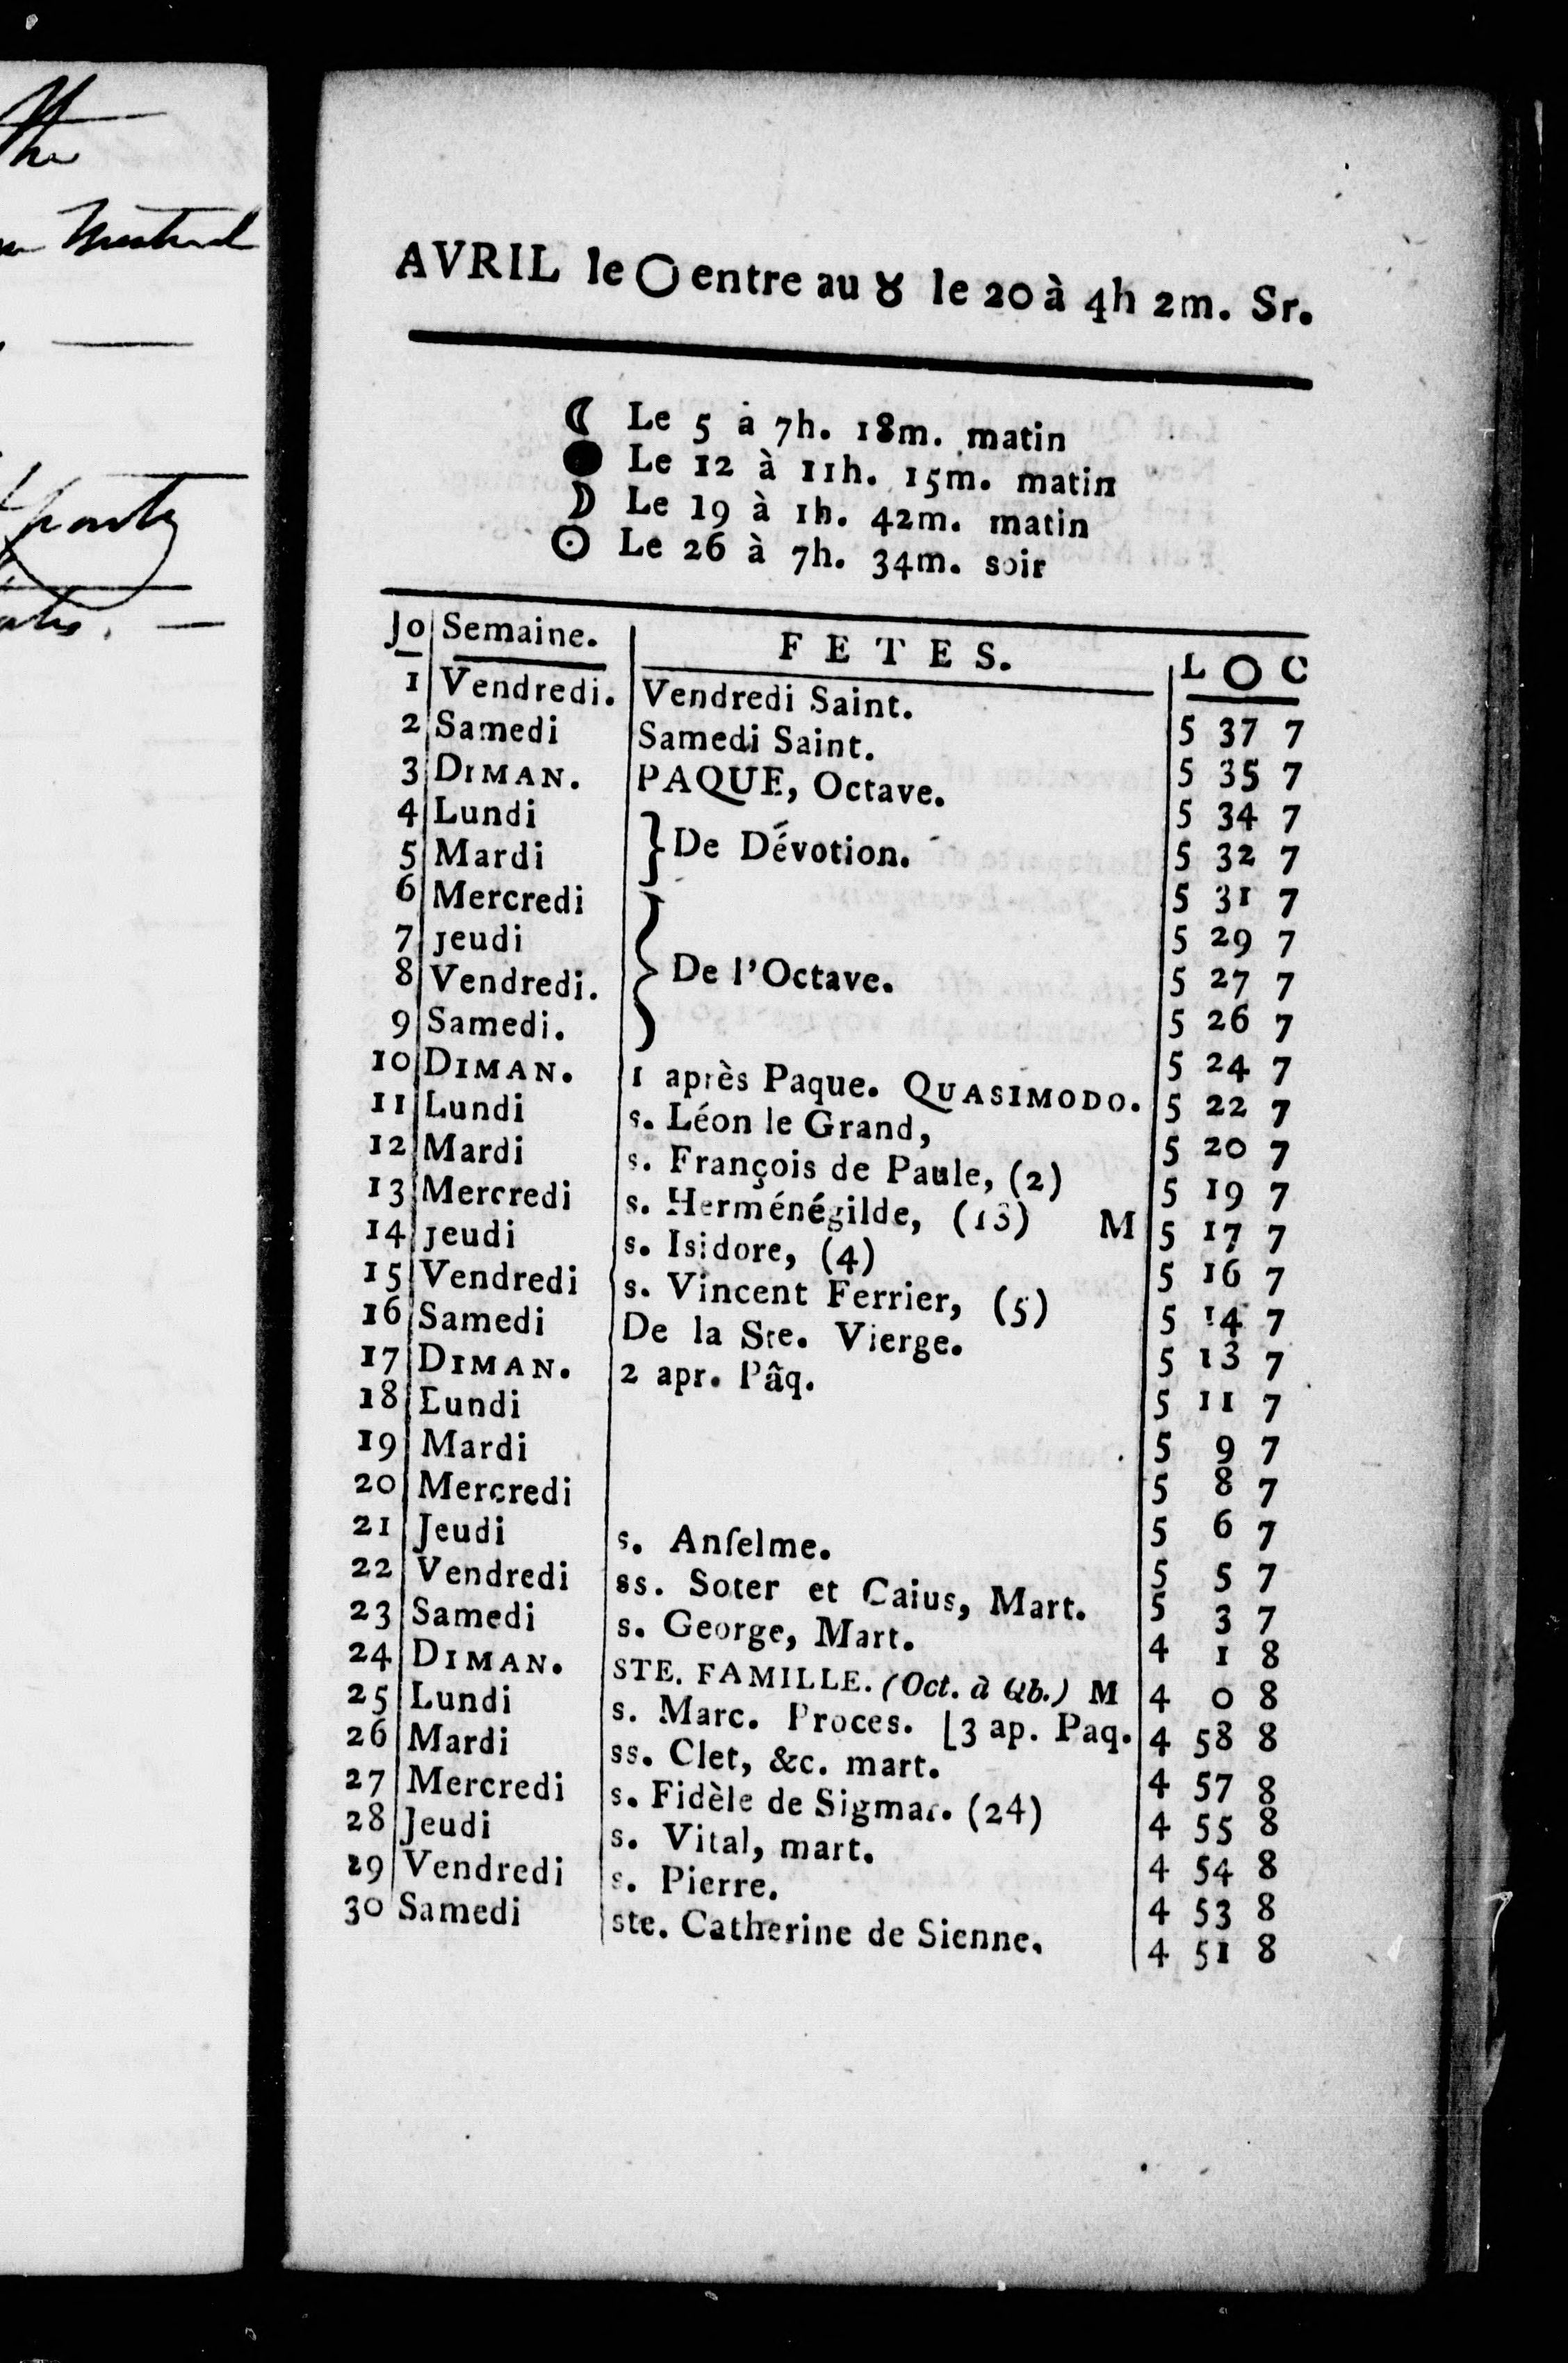 the
Mustard
party
AVRIL le ○ entre au ♉ le 20 à 4h 2m. Sr.
☾ Le 5 à 7h. 18m. matin
● Le 12 à 11h. 15m. matin
☽ Le 19 à 1h. 42m. matin
☉ Le 26 à 7h. 34m. soir
Jo Semaine. FETES. L ○ C
1 Vendredi. Vendredi Saint. 5 37 7
2 Samedi Samedi Saint. 5 35 7
3 DIMAN. PAQUE, Octave. 5 34 7
4 Lundi } De Dévotion. 5 32 7
5 Mardi 5 31 7
6 Mercredi } De l'Octave. 5 29 7
7 jeudi 5 27 7
8 Vendredi. 5 26 7
9 Samedi. 5 24 7
10 DIMAN. 1 après Paque. QUASIMODO. 5 22 7
11 Lundi s. Léon le Grand, 5 20 7
12 Mardi s. François de Paule, (2) 5 19 7
13 Mercredi s. Herménégilde, (13) M 5 17 7
14 jeudi s. Isidore, (4) 5 16 7
15 Vendredi s. Vincent Ferrier, (5) 5 14 7
16 Samedi De la Ste. Vierge. 5 13 7
17 DIMAN. 2 apr. Pâq. 5 11 7
18 Lundi 5 9 7
19 Mardi 5 8 7
20 Mercredi 5 6 7
21 Jeudi s. Anſelme. 5 5 7
22 Vendredi ss. Soter et Caius, Mart. 5 3 7
23 Samedi s. George, Mart. 4 1 8
24 DIMAN. STE. FAMILLE. (Oct. à Qb.) M 4 0 8
25 Lundi s. Marc. Proces. [3 ap. Paq. 4 58 8
26 Mardi ss. Clet, &c. mart. 4 57 8
27 Mercredi s. Fidèle de Sigmar. (24) 4 55 8
28 Jeudi s. Vital, mart. 4 54 8
29 Vendredi s. Pierre. 4 53 8
30 Samedi ste. Catherine de Sienne. 4 51 8